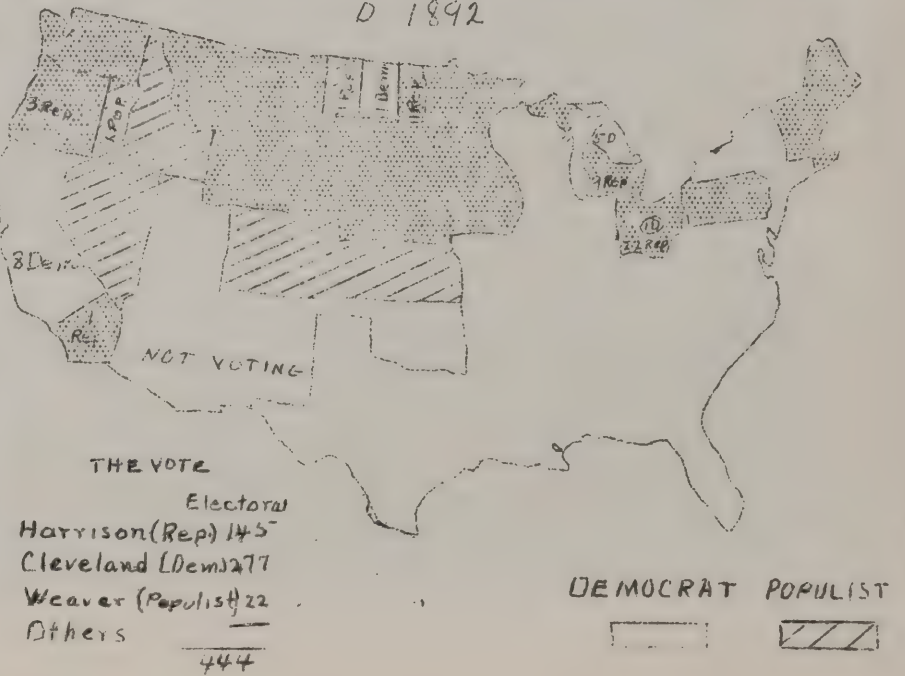 D 1892
3 Rep.
1 Pop.
1 Dem
1 Rep
5 D
9 Rep
1D
22 Rep.
8 Dem.
NOT VOTING
THE VOTE
Electoral
Harrison (Rep) 145
Cleveland (Dem) 277
Weaver (Populist) 22
Others
444
DEMOCRAT POPULIST